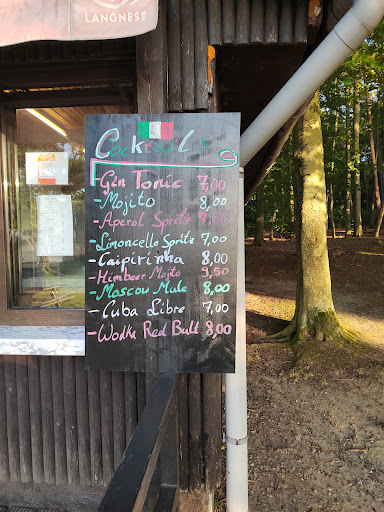 LANGNESE
Cocktail's
Gin Tonic 7,00
- Mojito 8,00
- Aperol Spritz
- Limoncello Spritz 7,00
- Caipirinha 8,00
- Himbeer Mojito 9,50
- Moscow Mule 8,00
- Cuba Libre 7,00
- Wodka Red Bull 8,00